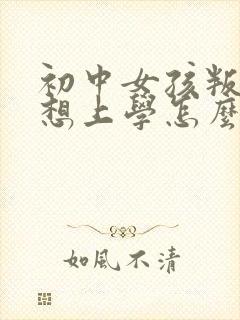 初中女孩叛
想上學怎麼
如風不清